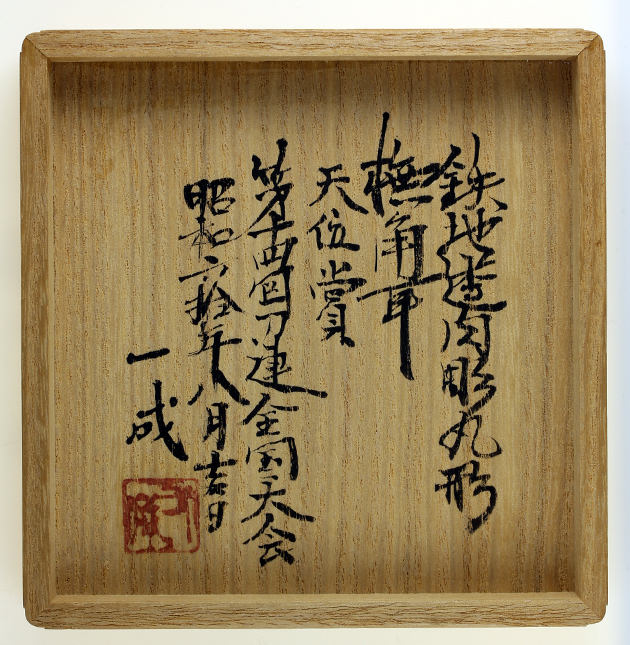 鉄地透肉彫丸形
撫角耳
天位賞
第十四回刀連全国大会
昭和六拾年八月吉日
一成